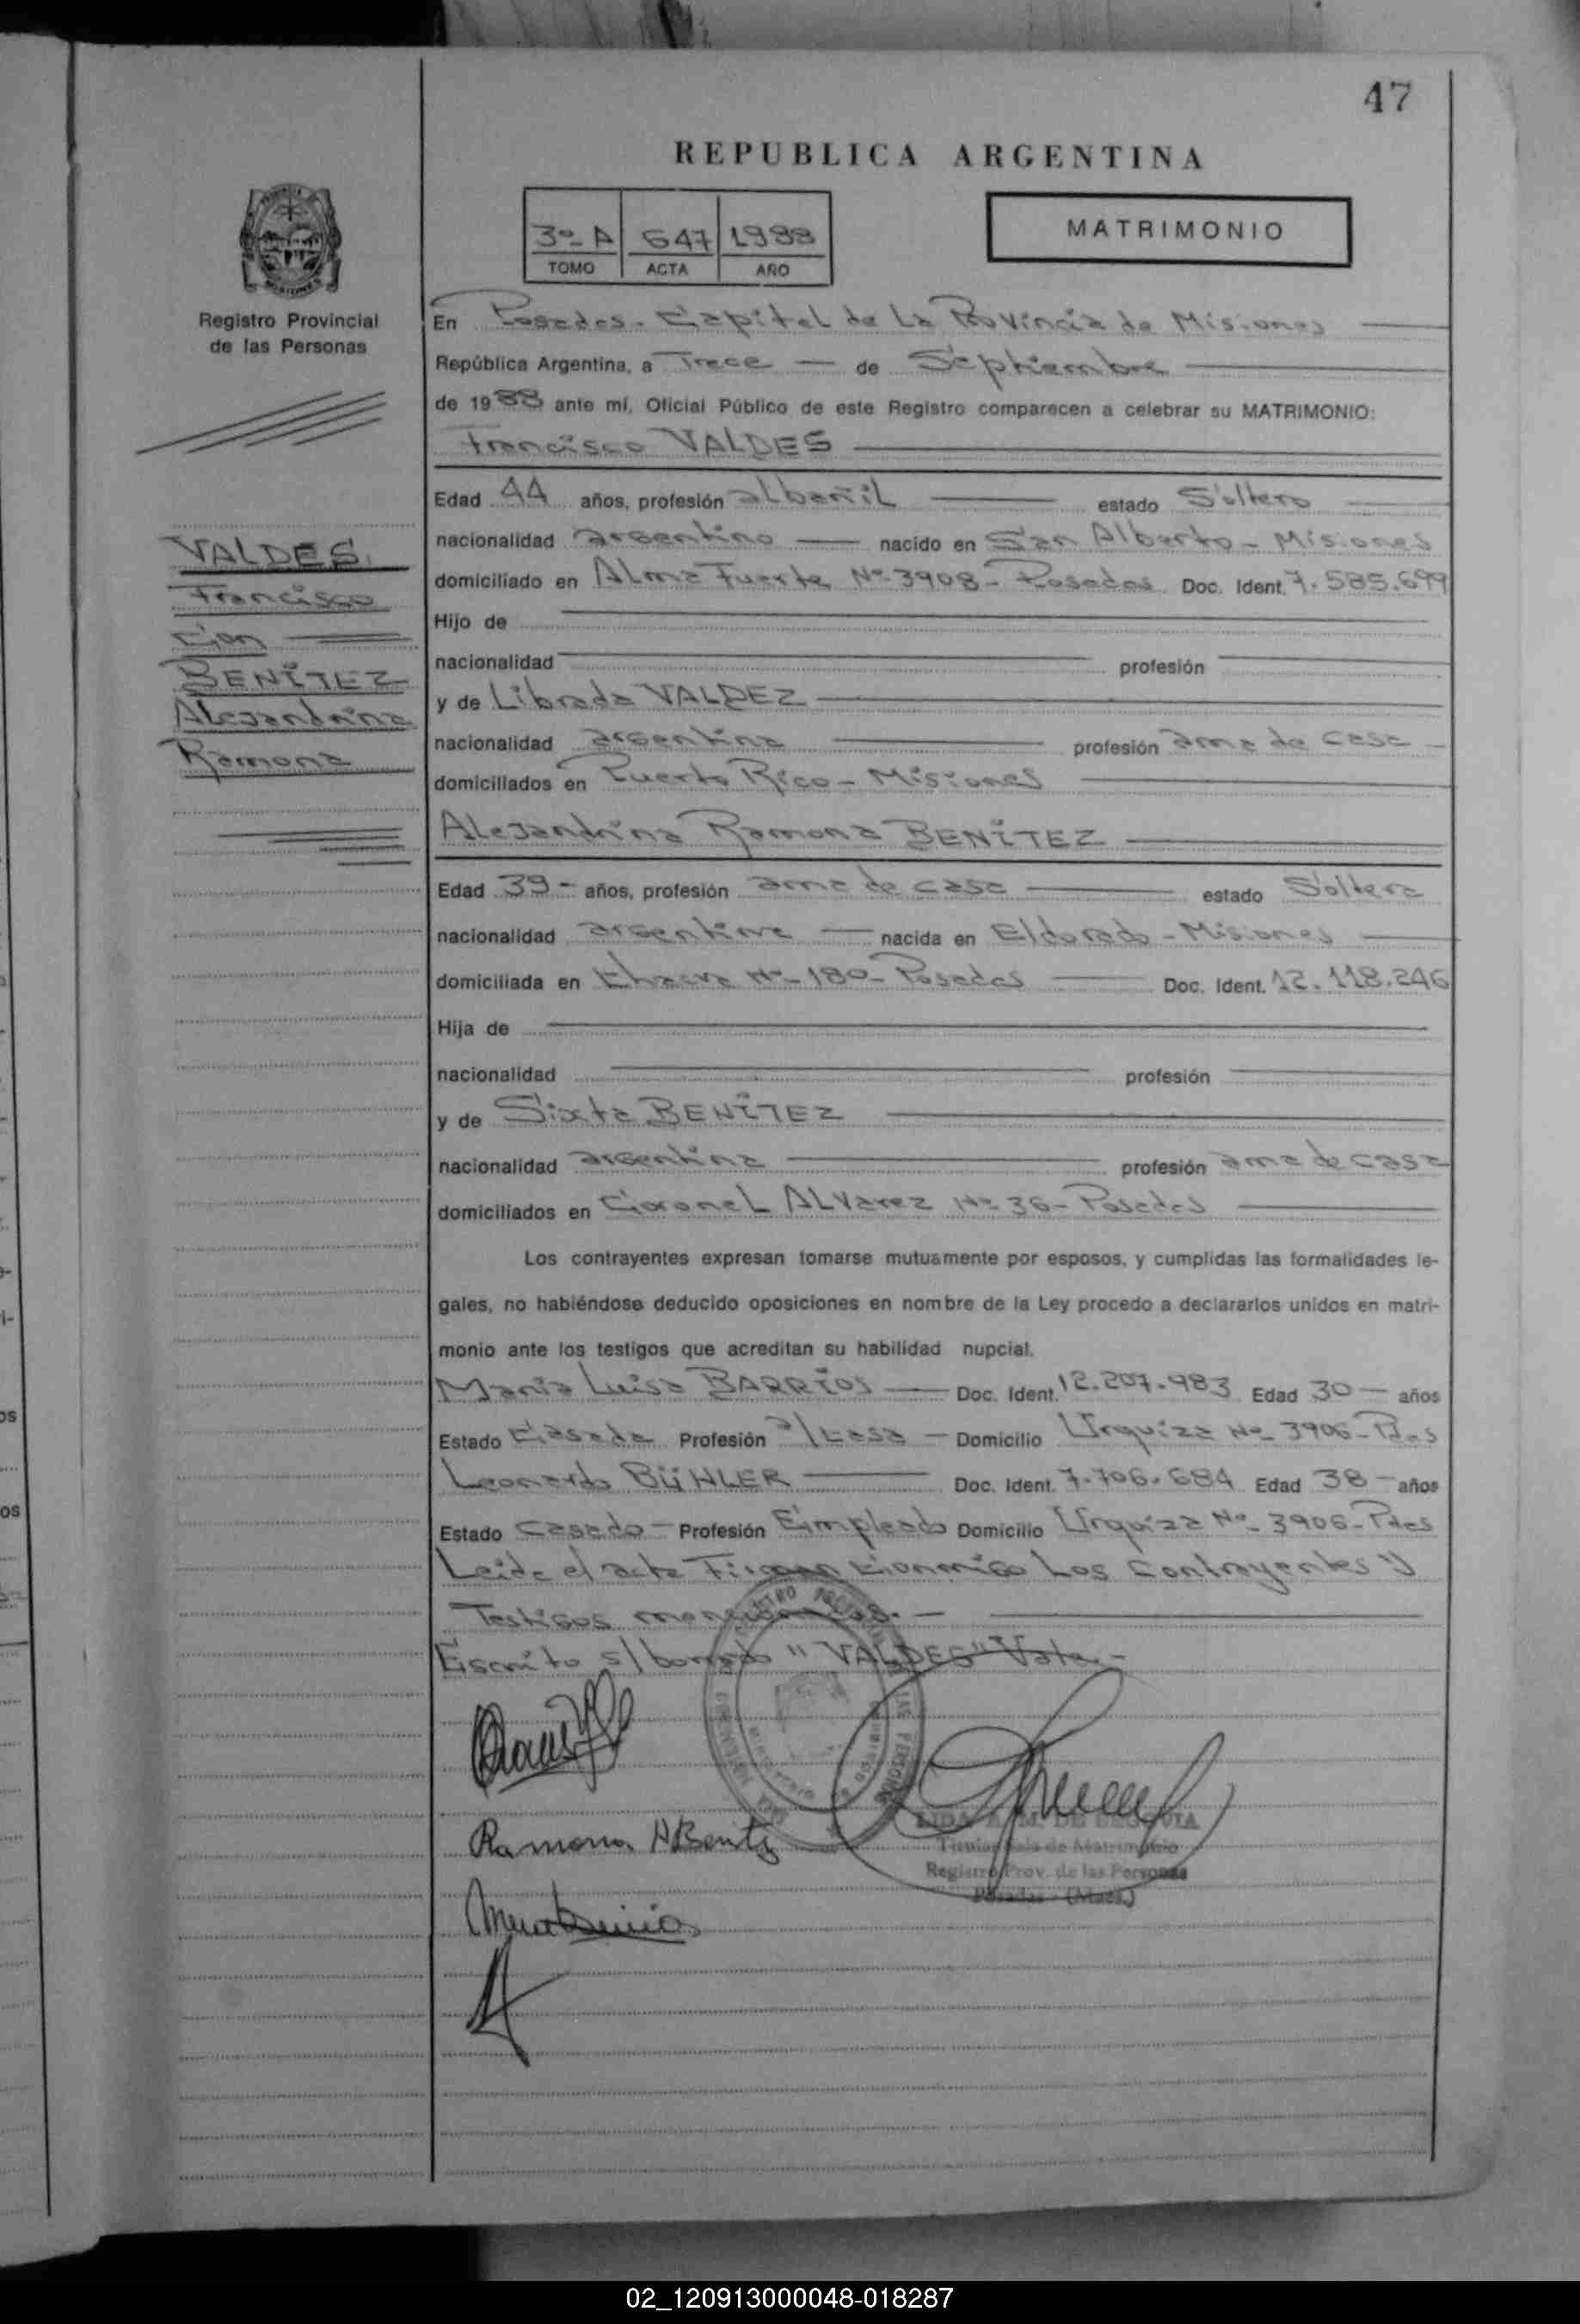 47
REPUBLICA ARGENTINA
3º A 647 1988
TOMO ACTA AÑO
MATRIMONIO
Registro Provincial
de las Personas
En Posadas. Capital de La Provincia de Misiones
República Argentina, a Trece de Septiembre
de 1988 ante mí, Oficial Público de este Registro comparecen a celebrar su MATRIMONIO:
Francisco VALDES
VALDES
Francisco
con
BENÍTEZ
Alejandrina
Ramona
Edad 44 años, profesión albañil estado Soltero
nacionalidad argentino nacido en San Alberto - Misiones
domiciliado en Alma Fuerte Nº 3908 - Posadas Doc. Ident. 7.585.699
Hijo de
nacionalidad profesión
y de Librada VALDEZ
nacionalidad argentina profesión ama de casa
domiciliados en Puerto Rico - Misiones
Alejandrina Ramona BENÍTEZ
Edad 39 - años, profesión ama de casa estado Soltera
nacionalidad argentina nacida en Eldorado - Misiones
domiciliada en Chacra Nº 180 - Posadas Doc. Ident. 12.118.246
Hija de
nacionalidad profesión
y de Sixta BENÍTEZ
nacionalidad argentina profesión ama de casa
domiciliados en Coronel ALvarez Nº 36 - Posadas
Los contrayentes expresan tomarse mutuamente por esposos, y cumplidas las formalidades le-
gales, no habiéndose deducido oposiciones en nombre de la Ley procedo a declararlos unidos en matri-
monio ante los testigos que acreditan su habilidad nupcial.
María Luisa BARRIOS Doc. Ident. 12.207.983 Edad 30 años
Estado Casada Profesión a/casa Domicilio Urquiza Nº 3906 - Pdas
Leonardo BÜHLER Doc. Ident. 7.706.684 Edad 38 - años
Estado casado - Profesión Empleado Domicilio Urquiza Nº 3906 - Pdas
Leida el acta Firman Conmigo Los Contrayentes y
Testigos mencionados. -
Escrito s/borrado "VALDES" Vale. -
Ramona A Benitz
LIDA A. M. DE SEGOVIA
Titular Sala de Matrimonio
Registro Prov. de las Personas
Posadas (Mnes.)
02_120913000048-018287